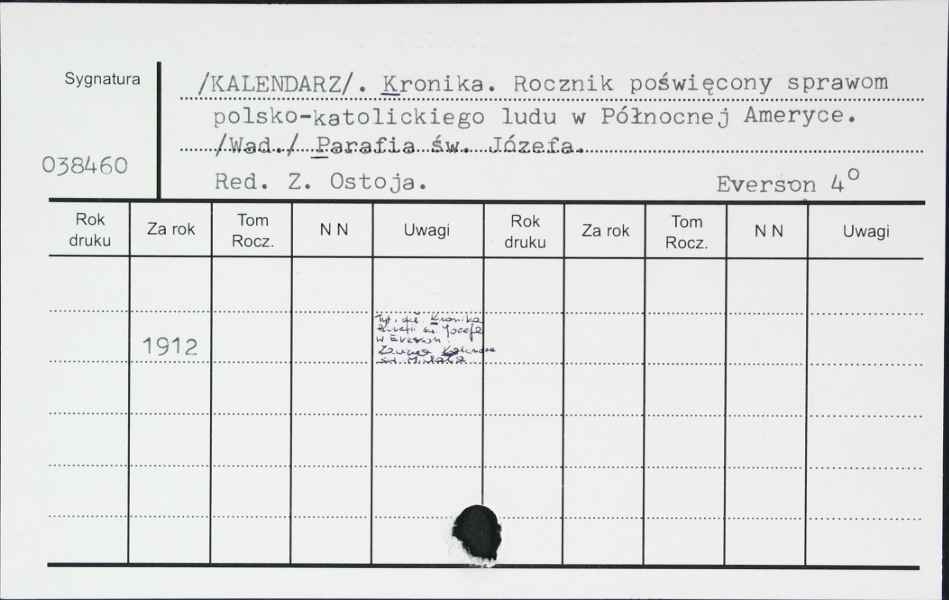 Sygnatura
/KALENDARZ/. Kronika. Rocznik poświęcony sprawom
polsko-katolickiego ludu w Północnej Ameryce.
/Wad./ Parafia św. Józefa.
038460
Red. Z. Ostoja. Everson 4°
Rok druku Za rok Tom Rocz. N N Uwagi Rok druku Za rok Tom Rocz. N N Uwagi
1912
Kronika
Parafii św. Józefa
w Everson